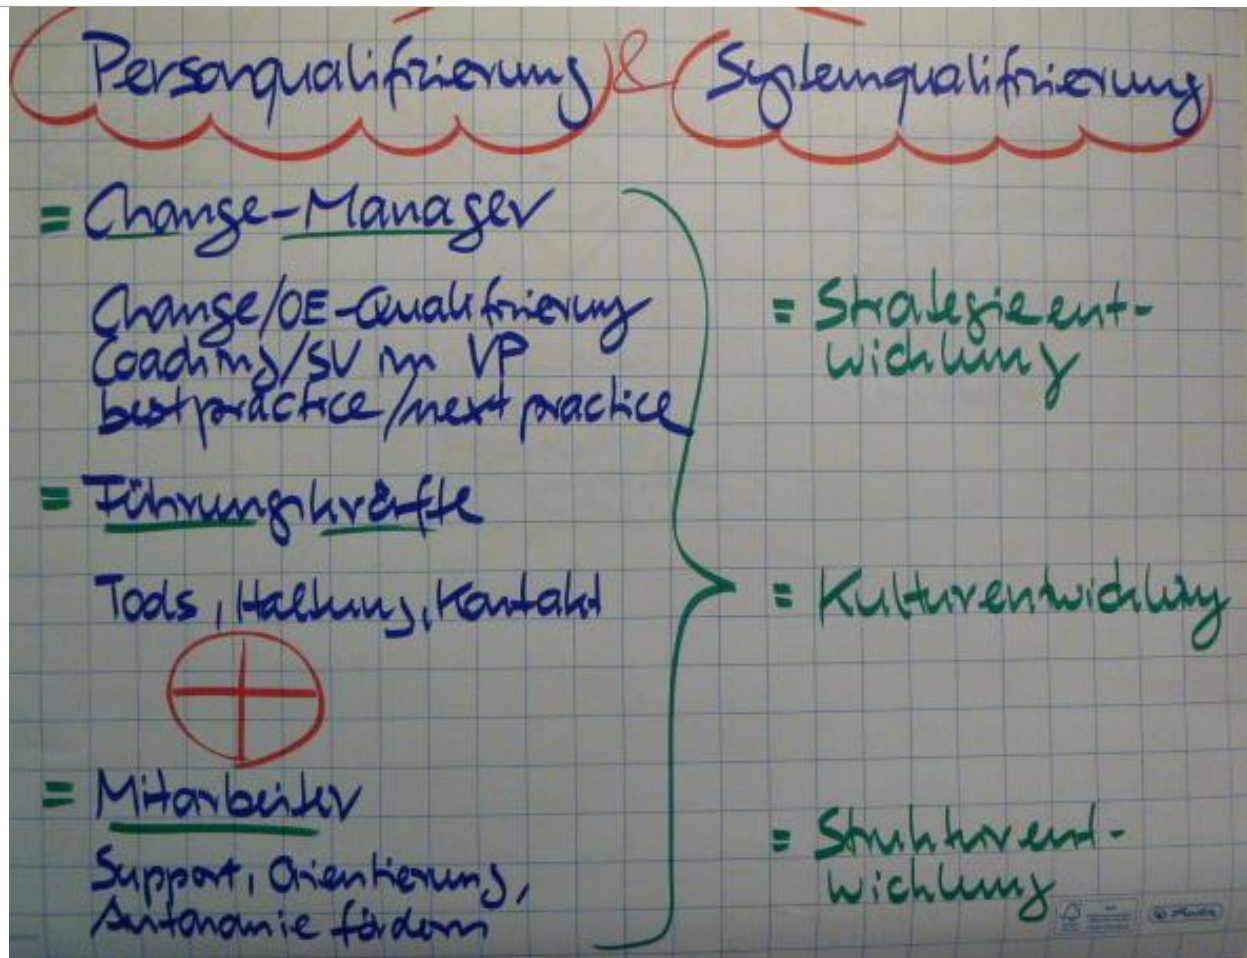 Personqualifizierung & Systemqualifizierung
= Change-Manager
Change/OE-Qualifizierung
Coaching/SV im VP
best practice/next practice
= Führungskräfte
Tools, Haltung, Kontakt
= Mitarbeiter
Support, Orientierung,
Autonomie fördern
= Strategieent-
wicklung
= Kulturentwicklung
= Strukturent-
wicklung